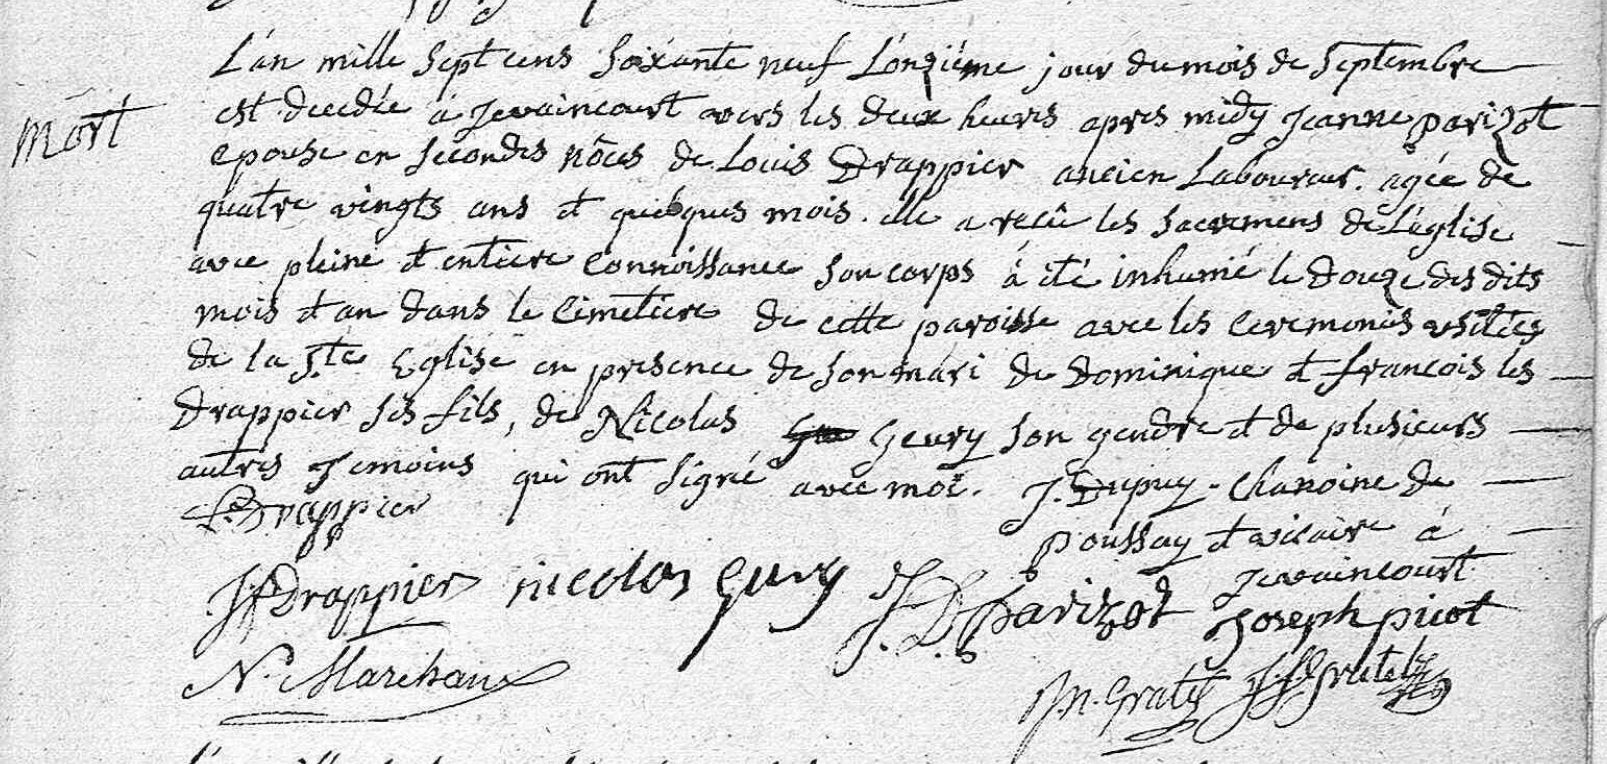 L'an mille Sept cens Soixante neuf L'onziéme jour du mois de Septembre
Mort
est decedée à Jevaincourt vers les deux heures apres midy Jeanne parizot
epouse en secondes nôces de Louis Drappier ancien Laboureur. agée de
quatre vingts ans et quelques mois. elle a recû les sacremens de L'église
avec pleine et entiere Connoissance son corps à été inhumé le douze des dits
mois et an dans le Cimetiere de cette paroisse avec les Ceremonies usitées
de la Ste Eglise en presence de son mari de Dominique et francois les
Drappier ses fils, de Nicolas Geury son gendre et de plusieurs
autres Temoins qui ont signé avec moi. J. Dupuy. Chanoine de
Poussay et vicaire à
Jevaincourt
Drappier
Drappier nicolas geury J. D. Parizot Joseph picot
N. Marchan